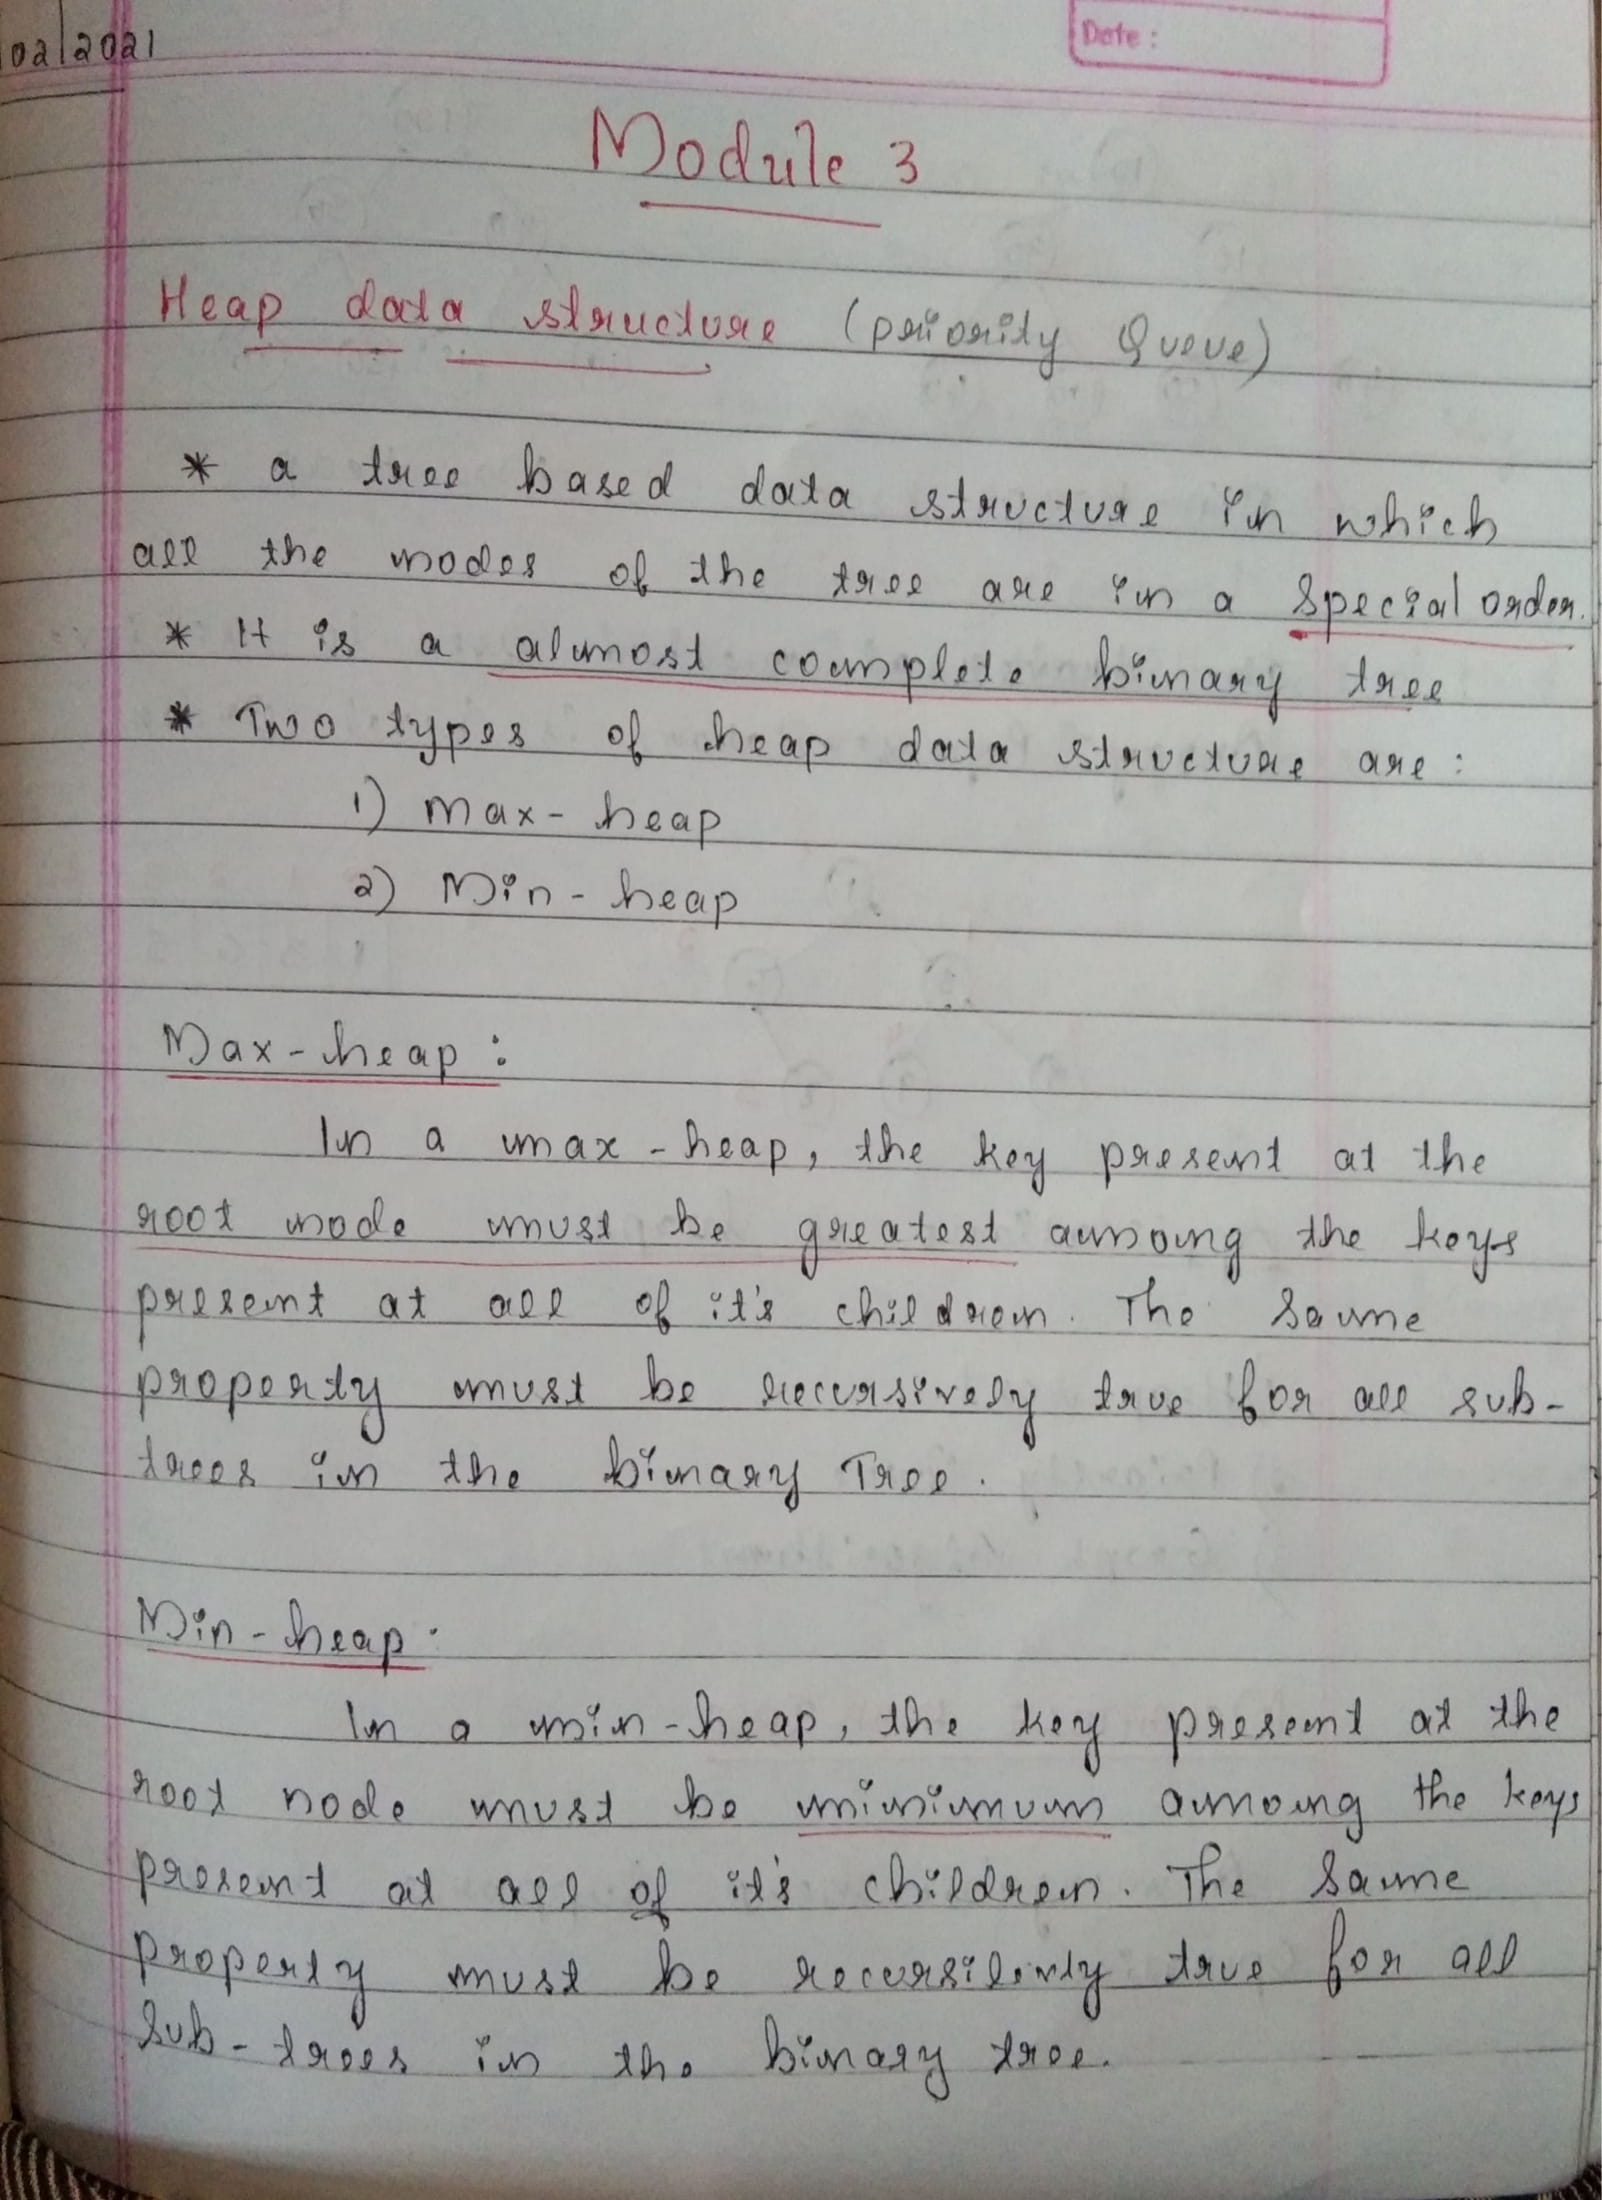 02/2021
Date :
Module 3
Heap data structure (priority Queue)
* a tree based data structure in which
all the nodes of the tree are in a special order.
* It is a almost complete binary tree
* Two types of heap data structure are :
1) Max - heap
2) Min - heap
Max - heap :
In a max - heap, the key present at the
root node must be greatest among the keys
present at all of it's children. The same
property must be recursively true for all sub-
trees in the binary Tree.
Min - heap.
In a min - heap, the key present at the
root node must be minimum among the keys
present at all of it's children. The same
property must be true for all
sub - trees in the binary tree.